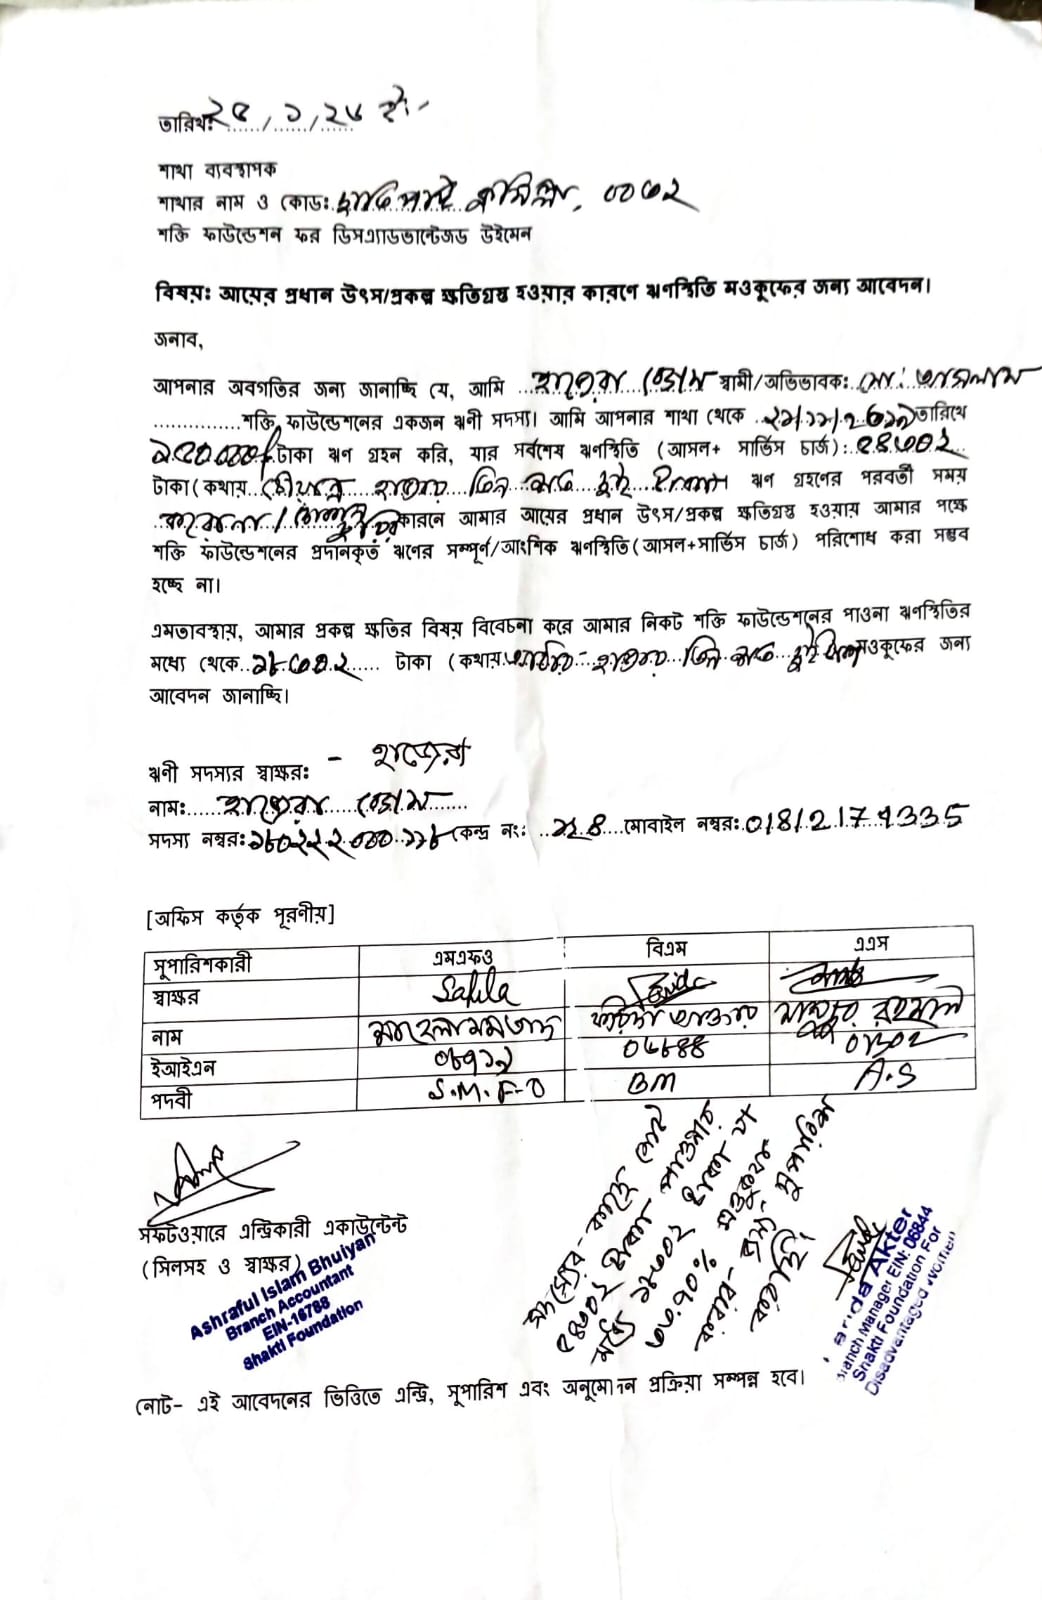 তারিখঃ ২৫/১/২৬ ইং-
শাখা ব্যবস্থাপক
শাখার নাম ও কোড: কুমিল্লা, ০০৩২
শক্তি ফাউন্ডেশন ফর ডিসএ্যাডভান্টেজড উইমেন
বিষয়: আয়ের প্রধান উৎস/প্রকল্প ক্ষতিগ্রস্ত হওয়ার কারণে ঋণস্থিতি মওকুফের জন্য আবেদন।
জনাব,
আপনার অবগতির জন্য জানাচ্ছি যে, আমি হাজেরা বেগম স্বামী/অভিভাবক: মো:
শক্তি ফাউন্ডেশনের একজন ঋণী সদস্য। আমি আপনার শাখা থেকে তারিখে
টাকা ঋণ গ্রহন করি, যার সর্বশেষ ঋণস্থিতি (আসল+ সার্ভিস চার্জ): ৫৪৩০২
টাকা (কথায় চৌয়ান্ন হাজার তিন শত দুই টাকা ঋণ গ্রহণের পরবর্তী সময়
করোনা/ কারনে আমার আয়ের প্রধান উৎস/প্রকল্প ক্ষতিগ্রস্ত হওয়ায় আমার পক্ষে
শক্তি ফাউন্ডেশনের প্রদানকৃত ঋণের সম্পূর্ণ/আংশিক ঋণস্থিতি(আসল+সার্ভিস চার্জ) পরিশোধ করা সম্ভব
হচ্ছে না।
এমতাবস্থায়, আমার প্রকল্প ক্ষতির বিষয় বিবেচনা করে আমার নিকট শক্তি ফাউন্ডেশনের পাওনা ঋণস্থিতির
মধ্যে থেকে ১৮৩০২ টাকা (কথায় আঠার হাজার তিন শত দুই মওকুফের জন্য
আবেদন জানাচ্ছি।
ঋণী সদস্যর স্বাক্ষর: - হাজেরা
নাম: হাজেরা বেগম
সদস্য নম্বর: কেন্দ্র নং: মোবাইল নম্বর:
[অফিস কর্তৃক পূরণীয়]
সুপারিশকারী এমএফও বিএম এএস
স্বাক্ষর Salila
নাম ফরিদা আক্তার রহমান
ইআইএন ০৬৮৪৪
পদবী S.M.F-O BM A.S
সদস্যের কাছে মোট
৫৪৩০২ টাকা পাওনার
মধ্যে ১৮৩০২ টাকা বা
৩৩.৭০% মওকুফ
করার জন্য সুপারিশ
করছি।
সফটওয়ারে এন্ট্রিকারী একাউন্টেন্ট
(সিলসহ ও স্বাক্ষর)
Ashraful Islam Bhuiyan
Branch Accountant
EIN-16788
Shakti Foundation
Farida Akter
Branch Manager EIN: 06844
Shakti Foundation For
Disadvantaged Women
নোট- এই আবেদনের ভিত্তিতে এন্ট্রি, সুপারিশ এবং অনুমোদন প্রক্রিয়া সম্পন্ন হবে।